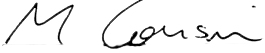 M Cousin